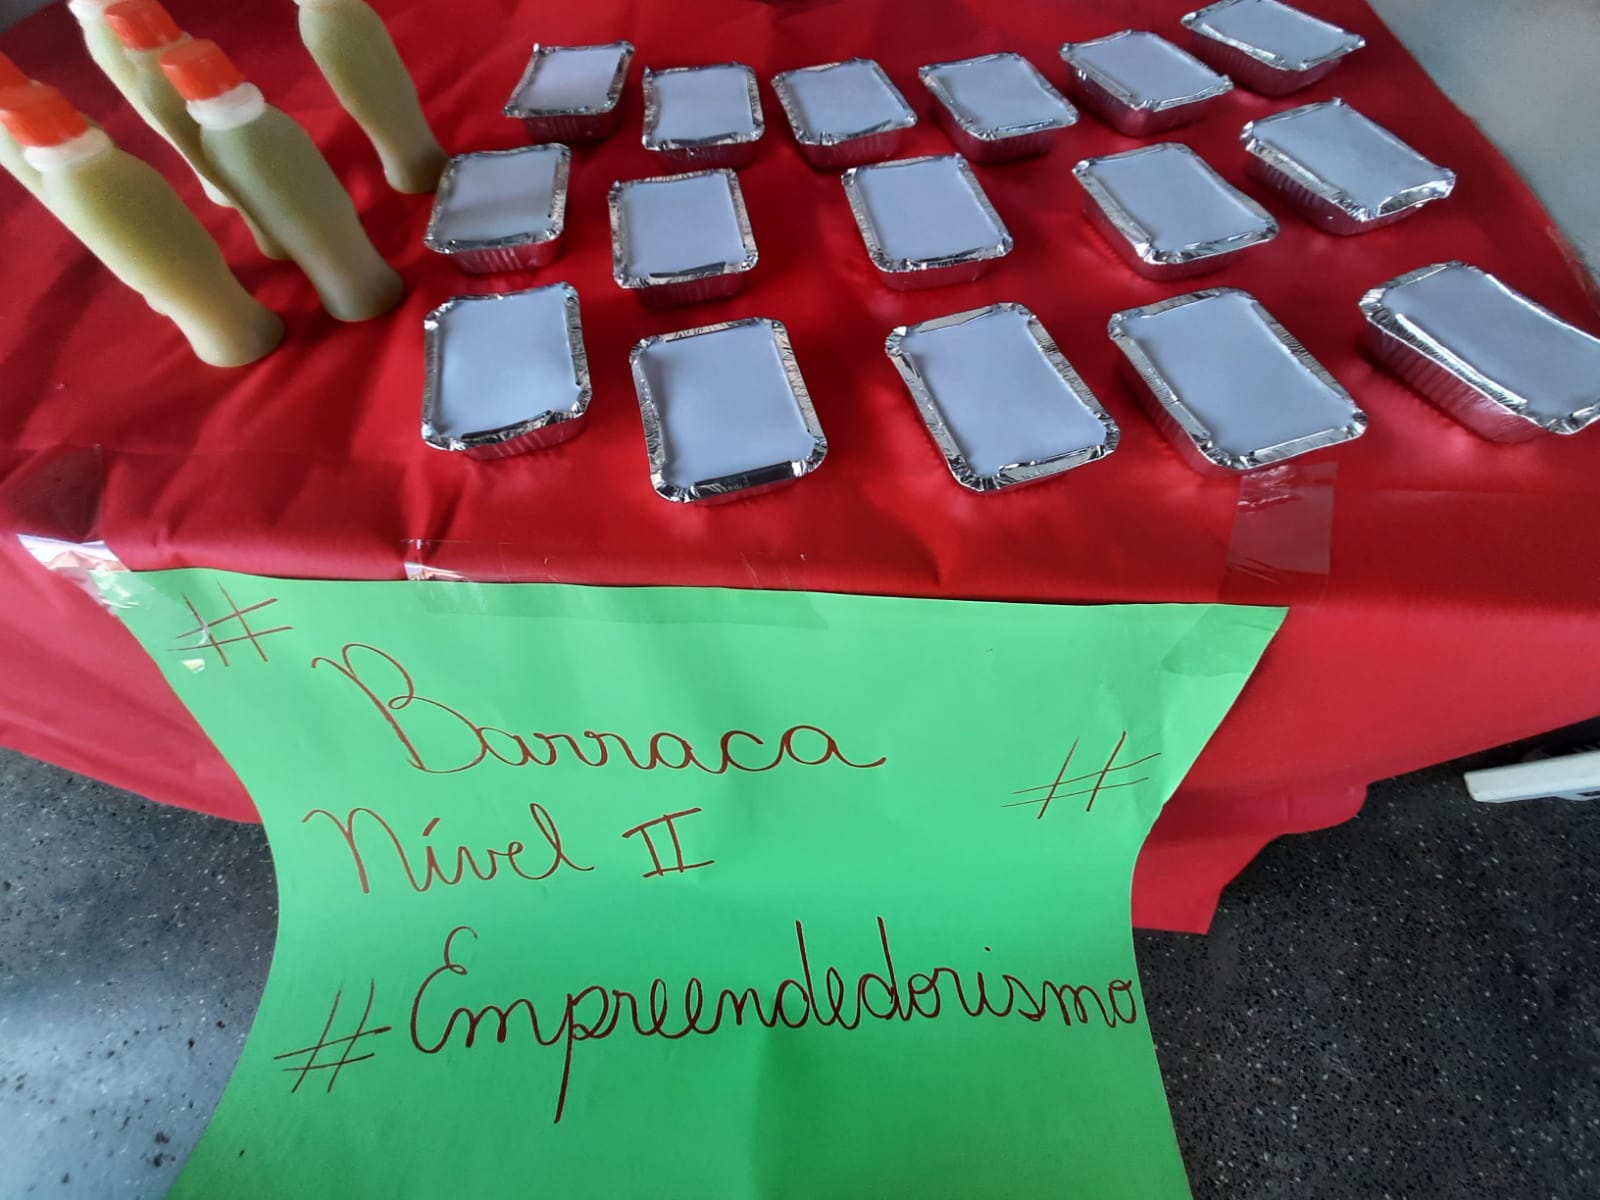 #
Barraca
#
Nível II
#Empreendedorismo